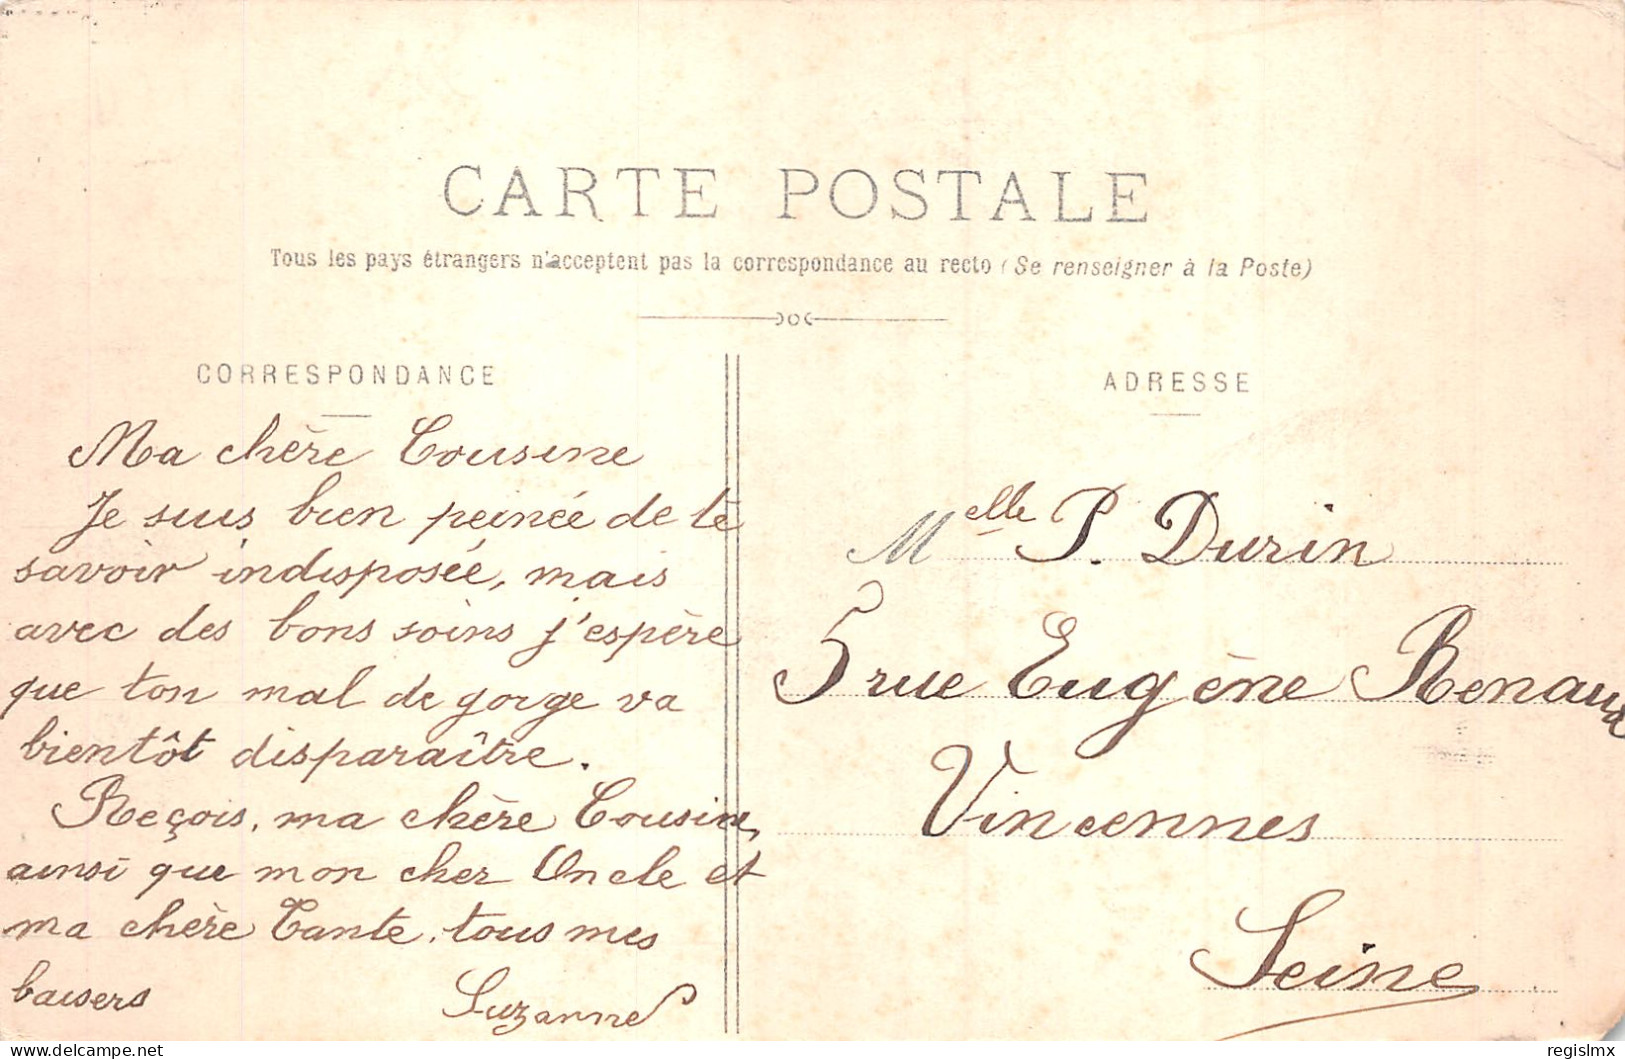 CARTE POSTALE
Tous les pays étrangers n'acceptent pas la correspondance au recto (Se renseigner à la Poste)
CORRESPONDANCE
Ma chère Cousine
Je suis bien peinée de te
savoir indisposée, mais
avec des bons soins j'espère
que ton mal de gorge va
bientôt disparaître.
Reçois, ma chère Cousine,
ainsi que mon cher Oncle et
ma chère Tante, tous mes
baisers Suzanne
ADRESSE
Melle P. Durin
5 rue Eugène Renaud
Vincennes
Seine
delcampe.net
regislmx